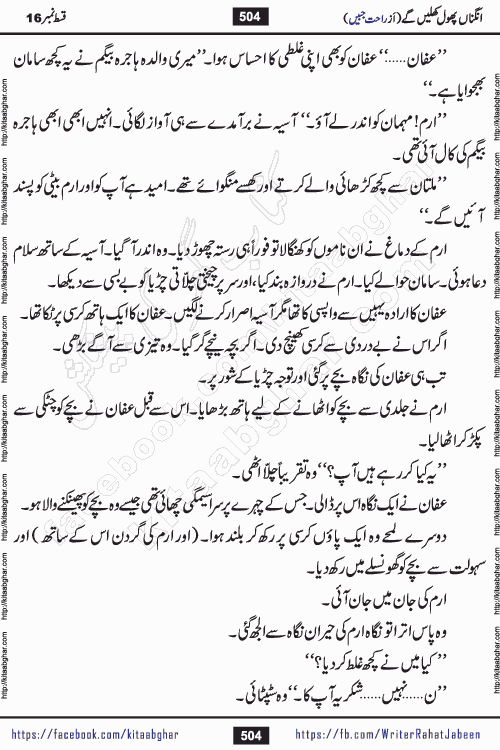 انگناں پھول کھلیں گے (از راحت جبیں)
504
قسط نمبر 16
’’عفان......‘‘ عفان کو بھی اپنی غلطی کا احساس ہوا۔ ’’میری والدہ ہاجرہ بیگم نے یہ کچھ سامان
بھجوایا ہے۔‘‘
’’ارم! مہمان کو اندر لے آؤ۔‘‘ آسیہ نے برآمدے سے ہی آواز لگائی۔ انہیں ابھی ابھی ہاجرہ
بیگم کی کال آئی تھی۔
’’ملتان سے کچھ کڑھائی والے کرتے اور کھسے منگوائے تھے۔ امید ہے آپ کو اور ارم بیٹی کو پسند
آئیں گے۔‘‘
ارم کے دماغ نے ان ناموں کو کھنگالا تو فوراً ہی رستہ چھوڑ دیا۔ وہ اندر آ گیا۔ آسیہ کے ساتھ سلام
دعا ہوئی۔ سامان حوالے کیا۔ ارم نے دروازہ بند کیا، اور سر پر چیختی چلاتی چڑیا کو بے بسی سے دیکھا۔
عفان کا ارادہ یہیں سے واپسی کا تھا مگر آسیہ اصرار کرنے لگیں۔ عفان کا ایک ہاتھ کرسی پر ٹکا تھا۔
اگر اس نے بے دردی سے کرسی کھینچ دی۔ اگر بچہ نیچے گر گیا۔ وہ تیزی سے آگے بڑھی۔
تب ہی عفان کی نگاہ بچے پر گئی اور توجہ چڑیا کے شور پر۔
ارم نے جلدی سے بچے کو اٹھانے کے لیے ہاتھ بڑھایا۔ اس سے قبل عفان نے بچے کو چٹکی سے
پکڑ کر اٹھا لیا۔
’’یہ کیا کر رہے ہیں آپ؟‘‘ وہ تقریباً چلا اٹھی۔
عفان نے ایک نگاہ اس پر ڈالی۔ جس کے چہرے پر سراسیمگی چھائی تھی جیسے وہ بچے کو پھینکنے والا ہو۔
دوسرے لمحے وہ ایک پاؤں کرسی پر رکھ کر بلند ہوا۔ (اور ارم کی گردن اس کے ساتھ) اور
سہولت سے بچے کو گھونسلے میں رکھ دیا۔
ارم کی جان میں جان آئی۔
وہ پاس اترا تو نگاہ ارم کی حیران نگاہ سے الجھ گئی۔
’’کیا میں نے کچھ غلط کر دیا؟‘‘
’’ن......نہیں......شکریہ آپ کا۔‘‘ وہ سٹپٹائی۔
https://facebook.com/kitaabghar
504
https://fb.com/WriterRahatJabeen
http://kitaabghar.com